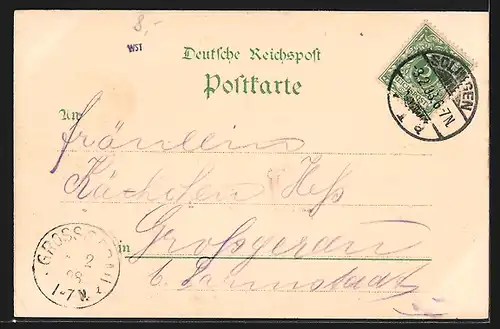 8,-
WST
Deutsche Reichspost
Postkarte
SOLINGEN
An
Fräulein
Käthchen Heß
in Großgerau
b. Darmstadt
GROSS-GERAU
1-7N.